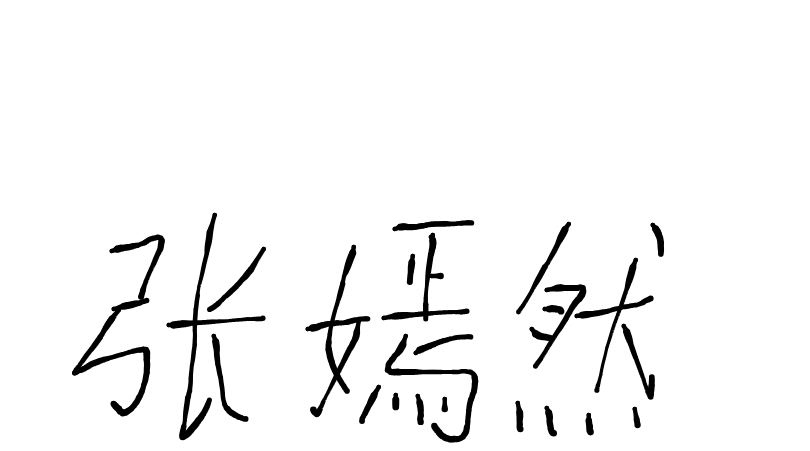 张嫣然